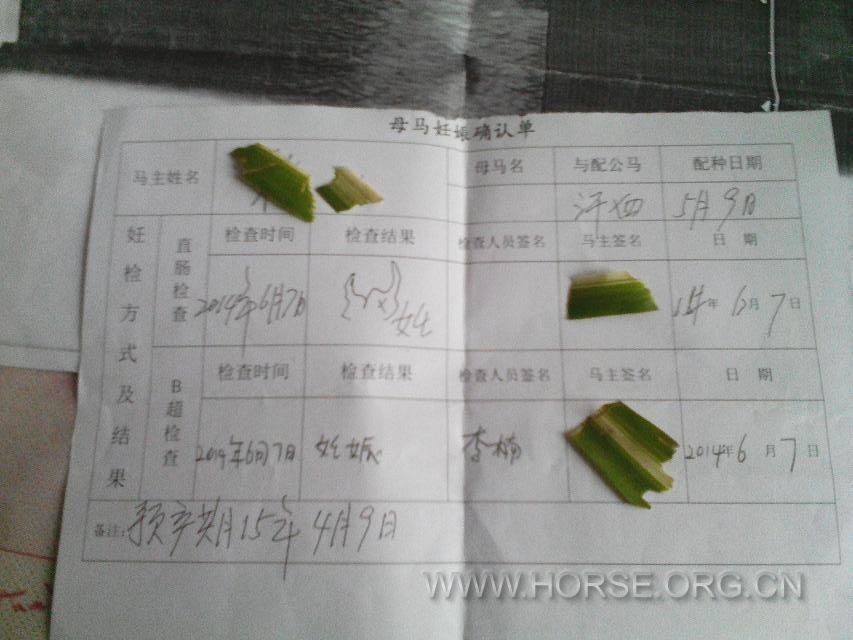 母马妊娠确认单
马主姓名 母马名 与配公马 配种日期
汗血 5月9日
妊检方式及结果
直肠检查
检查时间 检查结果 检查人员签名 马主签名 日 期
2014年6月7日 妊 14年 6月7日
B超检查
检查时间 检查结果 检查人员签名 马主签名 日 期
2014年6月7日 妊娠 李楠 2014年6月7日
备注: 预产期15年4月9日
WWW.HORSE.ORG.CN